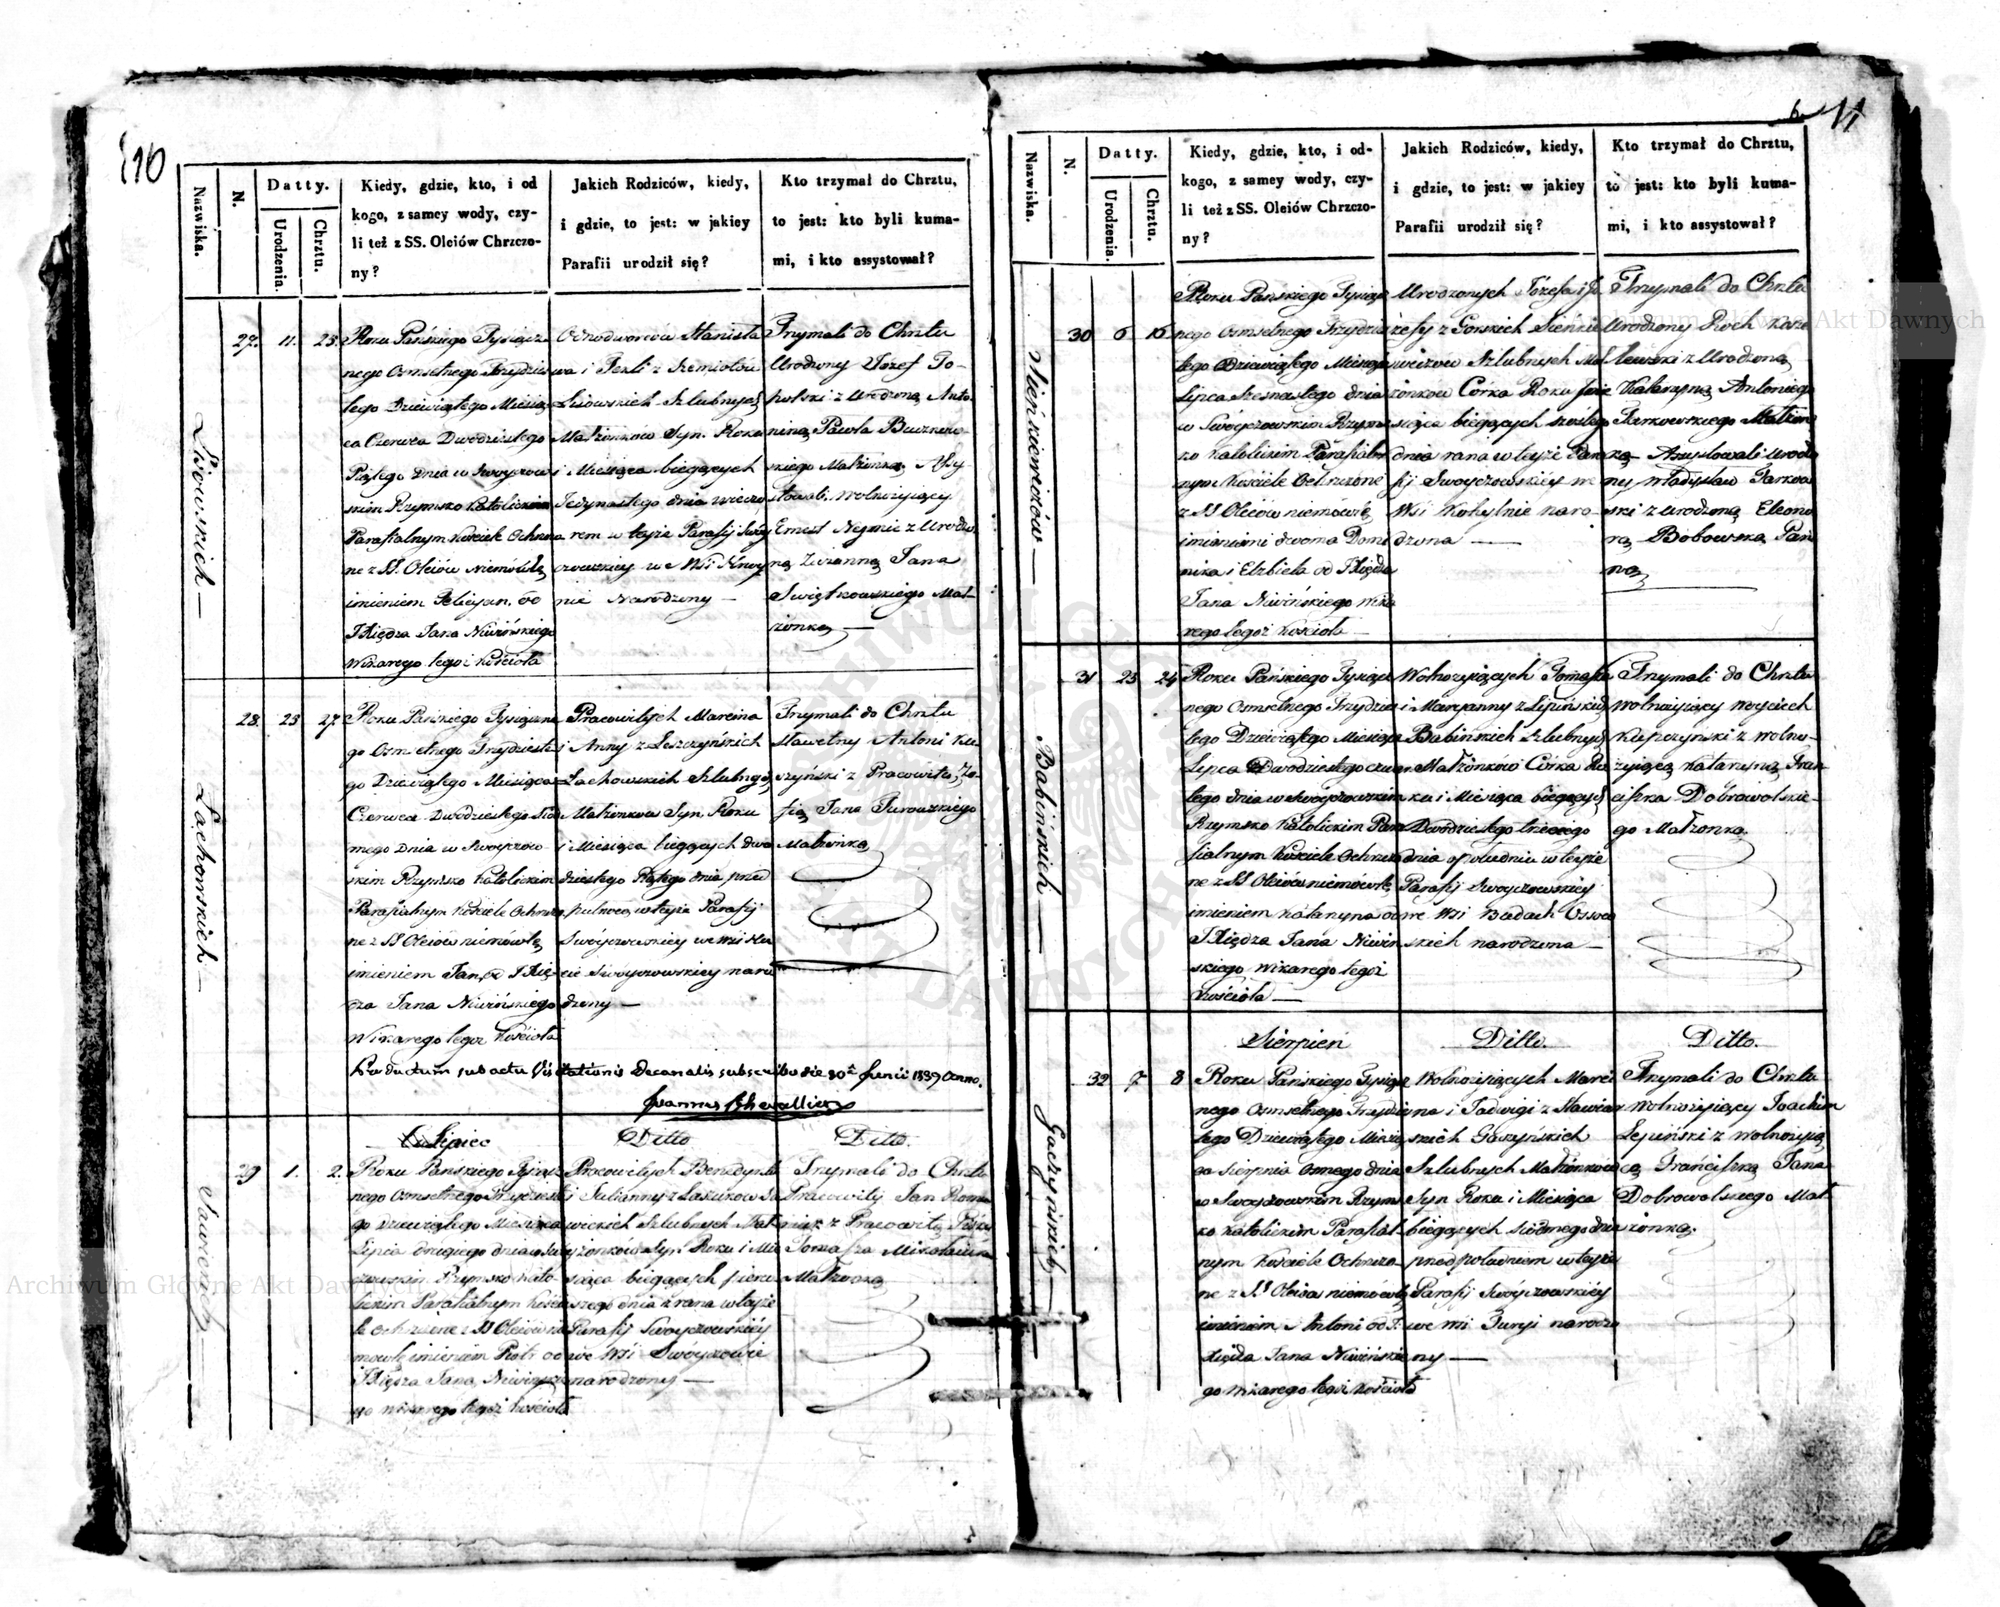 10
Nazwiska.
N.
Datty.
Urodzenia.
Chrztu.
Kiedy, gdzie, kto, i od
kogo, z samey wody, czy-
li też z SS. Oleiów Chrzczo-
ny?
Jakich Rodziców, kiedy,
i gdzie, to jest: w jakiey
Parafii urodził się?
Kto trzymał do Chrztu,
to jest: kto byli kuma-
mi, i kto assystował?
Lisowskich
27. 11. 25.
Roku Pańskiego Tysiącz
nego Osmsetnego Trzydzies
tego Dziewiątego Miesią
ca Czerwca Dwudziestego
Piątego Dnia w Swoyczow
skim Rzymsko Katolickim
Parafialnym Kościele Ochrzczo
ne z SS. Oleiów Niemowlę
imieniem Felicyan, od
XKiędza Jana Niwińskiego
Wikarego tegoż Kościoła
Odnodworców Stanisła
wa i Tekli z Szemiotów
Lisowskich Szlubnych
Małżonków Syn. Roku
i Miesiąca bieżących
Jedynastego dnia wieczo
rem w teyże Parafij Swoy
czowskiey we Wsi
nie Narodzony
Trzymali do Chrztu
Urodzony Józef To-
polski z Urodzoną Anto
niną Pawła
skiego Małżonką, Assy
stowali Wolnożyjący
Ernest z Urodzo
ną Zuzanną Jana
Swiątkowskiego Mał-
żonką
Lachowskich
28. 25 27.
Roku Pańskiego Tysiączne
go Osmsetnego Trzydziest
ego Dziewiątego Miesiąca
Czerwca Dwudziestego Siód
mego Dnia w Swoyczow
skim Rzymsko Katolickim
Parafialnym Kościele Ochrzczo
ne z SS Oleiów niemowlę
imieniem Jan, od XKię-
dza Jana Niwińskiego
Wikarego tegoż Kościoła
Pracowitych Marcina
i Anny z Leszczyńskich
Lachowskich Szlubnych
Małżonków Syn Roku
i Miesiąca bieżących dwu
dziestego Piątego dnia przed
południem w teyże Parafij
Swoyczowskiey we Wsi
Swoyczowskiey naro
dzony
Trzymali do Chrztu
Sławetny Antoni
szyński z Pracowitą Zo-
fią Jana Turowskiego
Małżonką
Productum sub actu Visitationis Decanalis subscribo die 30ª Junii 1839 Anno.
Joannes Chevallier
Lipiec
Ditto
Ditto.
29 1. 2.
Roku Pańskiego Tysiącz
nego Osmsetnego Trzydzieste
go dziewiątego Miesiąca
Lipca drugiego dnia w Swoy
czowskim Rzymsko Kato-
lickim Parafialnym Koście
le Ochrzczone z SS Oleiów nie
mowlę imieniem Piotr od
XKiędza Jana Niwińskie
go Wikarego tegoż Kościoła
Pracowitych Benedykta
i Julianny z
Szlubnych Mał
żonków Syn Roku i Mie
siąca bieżących pierw
szego dnia z rana w teyże
Parafij Swoyczowskiéy
we Wsi Swoyczowie
narodzony
Trzymali do Chrztu
Pracowity Jan
z Pracowitą
Tomasza
Małżonką
6. 11
Nazwiska.
N.
Datty.
Urodzenia.
Chrztu.
Kiedy, gdzie, kto, i od-
kogo, z samey wody, czy-
li też z SS. Oleiów Chrzczo-
ny?
Jakich Rodziców, kiedy,
i gdzie, to jest: w jakiey
Parafii urodził się?
Kto trzymał do Chrztu,
to jest: kto byli kuma-
mi, i kto assystował?
Sieńkiewiczów
30 6 16
Roku Pańskiego Tysiącz
nego Osmsetnego Trzydzies
tego Dziewiątego Miesiąca
Lipca Szesnastego dnia
w Swoyczowskim Rzyms
ko Katolickim Parafial
nym Kościele Ochrzczone
z SS Oleiów niemowlę
imieniami dwoma Domi
nika i Elżbieta od XKiędza
Jana Niwińskiego Wika
rego tegoż Kościoła
Urodzonych Józefa i Jó
zefy z Gorskich Sieńkie
wiczów Szlubnych Mał
żonków Córka Roku i Mie
siąca bieżących szóstego
dnia rana w teyże Para
fij Swoyczowskiéy we
Wsi Kohylnie naro
dzona
Trzymali do Chrztu
Urodzony Roch
lewski z Urodzoną
Katarzyną Antoniego
Tarkowskiego Małżon
ką Assystowali Urodzo
ny Władysław Tarkow
ski z Urodzoną Eleono
rą Bobowską Pan
ną
Babińskich
31 23 24
Roku Pańskiego Tysiącz
nego Osmsetnego Trzydzies
tego Dziewiątego Miesiąca
Lipca Dwudziestego czwar
tego dnia w Swoyczowskim
Rzymsko Katolickim Para
fialnym Kościele Ochrzczo
ne z SS Oleiów niemowlę
imieniem Katarzyna od
XKiędza Jana Niwiń
skiego Wikarego tegoż
Kościoła
Wolnożyjących Tomasza
i Maryanny z Lipińskich
Babińskich Szlubnych
Małżonków Córka Ro
ku i Miesiąca bieżących
Dwudziestego trzeciego
dnia o południu w teyże
Parafij Swoyczowskiey
we Wsi Budach Ossow
skich narodzona
Trzymali do Chrztu
Wolnożyjący Woyciech
Kupczyński z Wolno-
żyjącą Katarzyną Fran
ciszka Dobrowolskie-
go Małżonką
Sierpień
Ditto.
Ditto.
Gaczyńskich
32 7 8
Roku Pańskiego Tysiącz
nego Osmsetnego Trzydzies
tego Dziewiątego Miesią
ca Sierpnia Osmego dnia
w Swoyczowskim Rzyms
ko Katolickim Parafial-
nym Kościele Ochrzczo
ne z SS Oleiów niemowlę
imieniem Antoni od X
Kiędza Jana Niwińskie
go Wikarego tegoż Kościoła
Wolnożyjących Marci
na i Jadwigi z
skich Gaszyńskich
Szlubnych Małżonków
Syn Roku i Miesiąca
bieżących siódmego dnia
przed południem w teyże
Parafij Swoyczowskiéy
we Wsi narodzo
ny
Trzymali do Chrztu
Wolnożyjący Joachim
Lepiński z Wolnożyją
cą Franciszką Jana
Dobrowolskiego Mał
żonką.
Archiwum Główne Akt Dawnych
Archiwum Główne Akt Dawnych